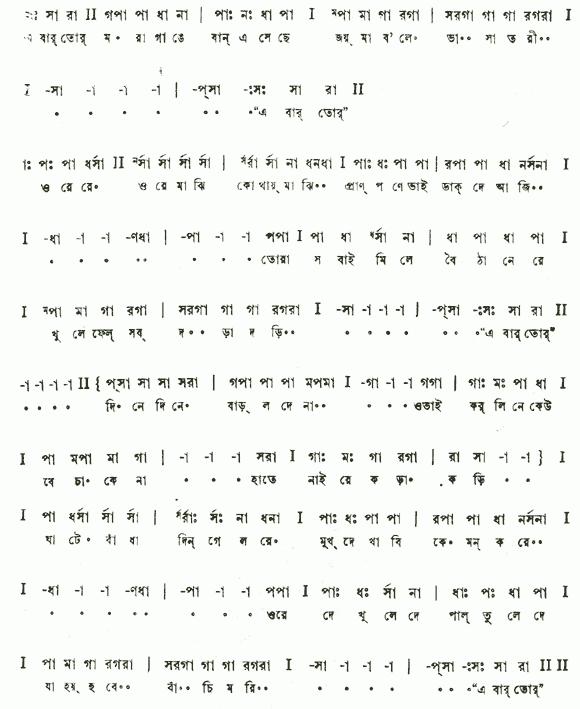 সা রা II গপা পা ধা না | পাঃ নঃ ধা পা I ᵐপা মা গা রগা | সরগা গা গা রগরা I
এ বার্ তোর্ ম • রা গা ঙে বান্ এ সে ছে জয়্ মা ব’ লে• ভা• • সা ত রী••
I -সা -া -া -া | -প্‌সা -ঃসঃ সা রা II
• • • • • • •“এ বার্ তোর্”
ঃ পঃ পা ধর্সা II র্সা র্সা র্সা র্সা | র্রা র্সা না ধনধা I পাঃ ধঃ পা পা | রপা পা ধা নর্সনা I
ও রে রে• ও রে মা ঝি কো থায়্ মা ঝি•• প্রাণ্ প ণে ভাই ডাক্ দে আ জি••
I -ধা -া -া -ণধা | -পা -া -া পপা I পা ধা র্সা না | ধা পা ধা পা I
• • • • • • • • তোরা স বাই মি লে বৈ ঠা নে রে
I ᵐপা মা গা রগা | সরগা গা গা রগরা I -সা -া -া -া | -প্‌সা -ঃসঃ সা রা II
খু লে ফেল্ সব্ দ•• ড়া দ ড়ি•• • • • • • • •“এ বার্ তোর্”
-া -া -া -া II { প্‌সা সা সা সরা | গপা পা পা মপমা I -গা -া -া গগা | গাঃ মঃ পা ধা I
• • • • দি• নে দি নে• বাড়্ ল দে না•• • • • ওভাই কর্ লি নে কেউ
I পা মপা মা গা | -া -া -া সরা I গাঃ মঃ গা রগা | রা সা -া -া } I
বে চা• কে না • • • হাতে নাই রে ক ড়া• ক ড়ি • •
I পা ধর্সা র্সা র্সা | র্রাঃ র্সঃ না ধনা I পাঃ ধঃ পা পা | রপা পা ধা নর্সনা I
ঘা টে• বাঁ ধা দিন্ গে ল রে• মুখ্ দে খা বি কে• মন্ ক রে••
I -ধা -া -া -ণধা | -পা -া -া পপা I পাঃ ধঃ র্সা না | ধাঃ পঃ ধা পা I
• • • • • • • • ওরে দে খু লে দে পাল্ তু লে দে
I পা মা গা রগরা | সরগা গা গা রগরা I -সা -া -া -া | -প্‌সা -ঃসঃ সা রা II II
যা হয়্ হ বে•• বাঁ•• চি ম রি•• • • • • • • •“এ বার্ তোর্”